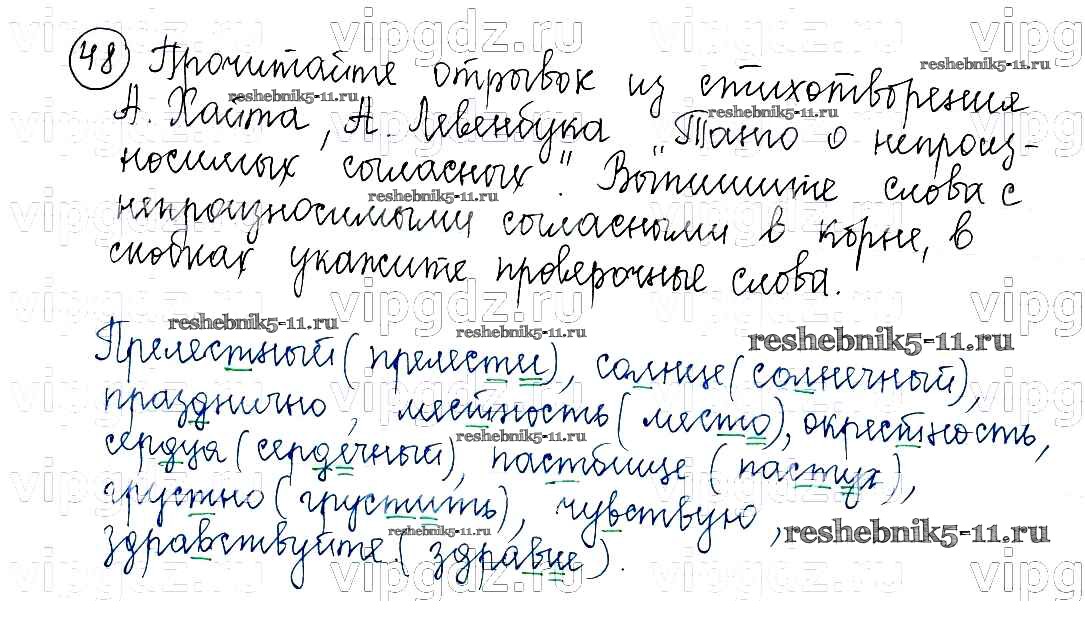 48 Прочитайте отрывок из стихотворения
А. Хайта, А. Левенбука „Танго о непроиз-
носимых согласных". Выпишите слова с
непроизносимыми согласными в корне, в
скобках укажите проверочные слова.
Прелестный (прелести), солнце (солнечный),
празднично, местность (место), окрестность,
сердца (сердечный), пастбище (пастух),
грустно (грустить), чувствую,
здравствуйте (здравие).
vipgdz.ru
reshebnik5-11.ru